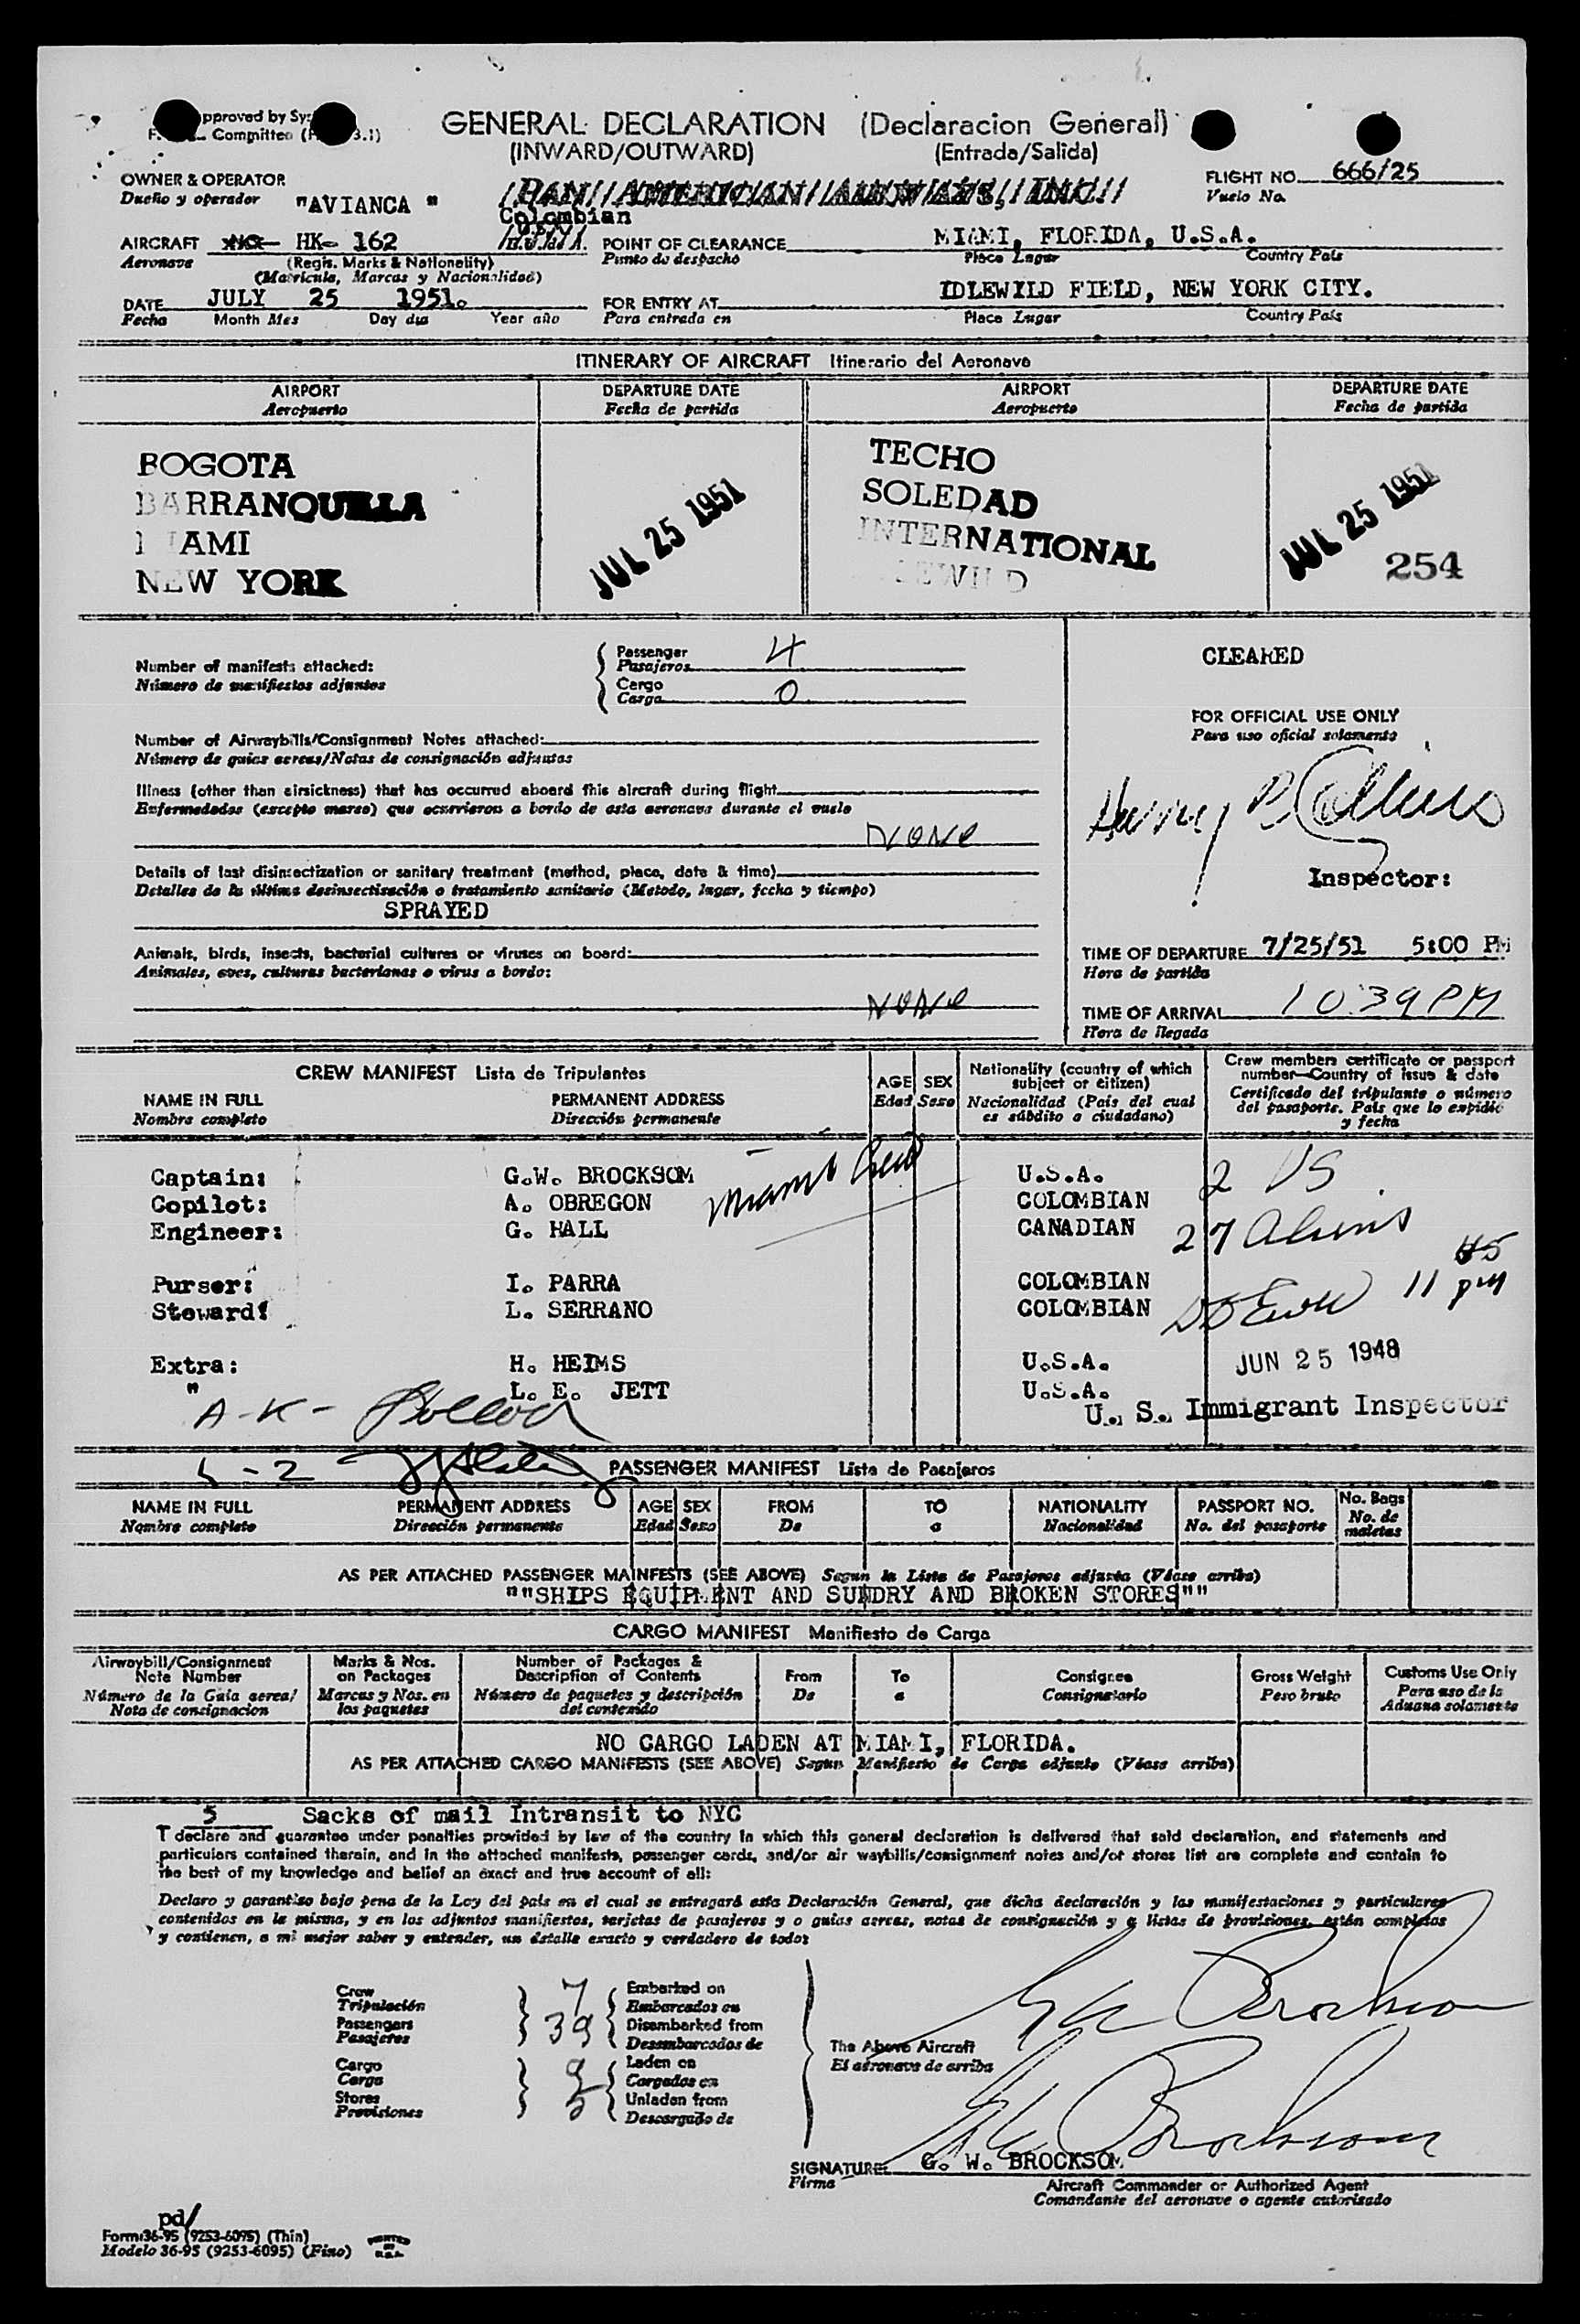 pproved by Sys
Committee (F 3.1)
GENERAL DECLARATION (Declaracion General)
(INWARD/OUTWARD) (Entrada/Salida)
OWNER & OPERATOR
Dueño y operador "AVIANCA "
PAN AMERICAN AIRWAYS, INC.
Colombian
FLIGHT NO. 666/25
Vuelo No.
AIRCRAFT HK- 162
Aeronave (Regis. Marks & Nationality)
(Matricula, Marcas y Nacionalidad)
POINT OF CLEARANCE MIAMI, FLORIDA, U.S.A.
Punto de despacho Place Lugar Country País
DATE JULY 25 1951.
Fecha Month Mes Day dia Year año
FOR ENTRY AT IDLEWILD FIELD, NEW YORK CITY.
Para entrada en Place Lugar Country País
ITINERARY OF AIRCRAFT Itinerario del Aeronave
AIRPORT DEPARTURE DATE AIRPORT DEPARTURE DATE
Aeropuerto Fecha de partida Aeropuerto Fecha de partida
BOGOTA TECHO
BARRANQUILLA SOLEDAD
MIAMI INTERNATIONAL
NEW YORK IDLEWILD
JUL 25 1951 JUL 25 1951
254
Number of manifests attached:
Número de manifiestos adjuntos
Passenger
Pasajeros 4
Cargo
Carga 0
CLEARED
FOR OFFICIAL USE ONLY
Para uso oficial solamente
Number of Airwaybills/Consignment Notes attached:
Número de guías aereas/Notas de consignación adjuntas
Illness (other than airsickness) that has occurred aboard this aircraft during flight
Enfermedades (excepto mareo) que ocurrieron a bordo de esta aeronave durante el vuelo
None
Harry P Collins
Inspector:
Details of last disinsectization or sanitary treatment (method, place, date & time)
Detalles de la última desinsectización o tratamiento sanitario (Metodo, lugar, fecha y tiempo)
SPRAYED
Animals, birds, insects, bacterial cultures or viruses on board:
Animales, aves, culturas bacterianas o virus a bordo:
None
TIME OF DEPARTURE 7/25/51 5:00 PM
Hora de partida
TIME OF ARRIVAL 10 39 PM
Hora de llegada
CREW MANIFEST Lista de Tripulantes
NAME IN FULL PERMANENT ADDRESS AGE SEX
Nombre completo Dirección permanente Edad Sexo
Nationality (country of which
subject or citizen)
Nacionalidad (País del cual
es súbdito o ciudadano)
Crew members certificate or passport
number—Country of issue & date
Certificado del tripulante o número
del pasaporte. País que lo expidió
y fecha
Miami Crew
Captain: G.W. BROCKSOM U.S.A. 2 US
Copilot: A. OBREGON COLOMBIAN
Engineer: G. HALL CANADIAN 27 Aliens
Purser: I. PARRA COLOMBIAN 11 45 PM
Steward: L. SERRANO COLOMBIAN
Extra: H. HEIMS U.S.A. JUN 25 1948
" L. E. JETT U.S.A.
U. S. Immigrant Inspector
A-K-
L-Z
PASSENGER MANIFEST Lista de Pasajeros
NAME IN FULL PERMANENT ADDRESS AGE SEX FROM TO NATIONALITY PASSPORT NO. No. Bags
Nombre completo Dirección permanente Edad Sexo De a Nacionalidad No. del pasaporte No. de maletas
AS PER ATTACHED PASSENGER MAINFESTS (SEE ABOVE) Segun la Lista de Pasajeros adjunta (Véase arriba)
""SHIPS EQUIPMENT AND SUNDRY AND BROKEN STORES""
CARGO MANIFEST Manifiesto de Carga
Airwaybill/Consignment
Note Number
Número de la Guía aerea/
Nota de consignacion
Marks & Nos.
on Packages
Marcas y Nos. en
los paquetes
Number of Packages &
Description of Contents
Número de paquetes y descripción
del contenido
From
De
To
a
Consignee
Consignatario
Gross Weight
Peso bruto
Customs Use Only
Para uso de la
Aduana solamente
NO CARGO LADEN AT MIAMI, FLORIDA.
AS PER ATTACHED CARGO MANIFESTS (SEE ABOVE) Segun Manifiesto de Carga adjunto (Véase arriba)
5 Sacks of mail Intransit to NYC
I declare and guarantee under penalties provided by law of the country in which this general declaration is delivered that said declaration, and statements and
particulars contained therein, and in the attached manifests, passenger cards, and/or air waybills/consignment notes and/or stores list are complete and contain to
the best of my knowledge and belief an exact and true account of all:
Declaro y garantizo bajo pena de la Ley del país en el cual se entregará esta Declaración General, que dicha declaración y las manifestaciones y particulares
contenidos en la misma, y en los adjuntos manifiestos, tarjetas de pasajeros y o guías aereas, notas de consignación y o listas de provisiones, están completas
y contienen, a mi mejor saber y entender, un detalle exacto y verdadero de todo:
Crew
Tripulación 7
Passengers
Pasajeros 39
Cargo
Carga
Stores
Provisiones
Embarked on
Embarcados en
Disembarked from
Desembarcados de
Laden on
Cargados en
Unladen from
Descargado de
The Above Aircraft
El aéronave de arriba
GW Brocksom
GW Brocksom
SIGNATURE G. W. BROCKSOM
Firma
Aircraft Commander or Authorized Agent
Comandante del aeronave o agente autorizado
pd/
Form 36-95 (9253-6095) (Thin)
Modelo 36-95 (9253-6095) (Fino)
PRINTED
IN
U.S.A.